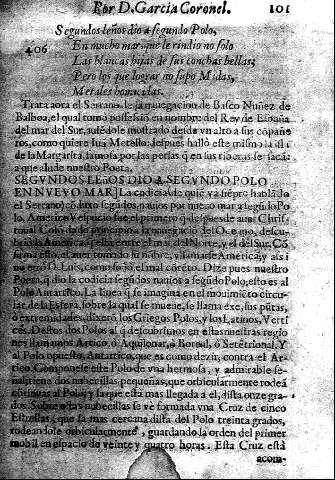 Por D. Garcia Coronel. 101
Segundos leños dio a segundo Polo,
406 En nuevo mar, que le rindio no solo
Las blancas hijas de sus conchas bellas;
Pero los que lograr no supo Midas,
Metales homicidas.
Trata aora el Serrano, la navegacion de Basco Nuñez de
Balboa, el qual tomò possession en nombre del Rey de España
del mar del Sur,
ros, como quiere
de la Margarita, famosa por las perlas q̃ en sus riberas se sacã:
a que alude nuestro Poeta.
SEGVNDOS LEÑOS DIO A SEGVNDO POLO
EN NUEVO MAR] La codicia
el Serrano) dio segũdos navios por nuevo mar a segũdo Po-
lo. Americo Vespucio fue el primero q̃ despues de aver Christ
tonal Colõ dado principio a la navegaciõ del Oceano, descu-
briò la America, q̃ està entre el mar del Norte, y el del Sur. Cõ
firma esto, el aver tomado su nõbre, y llamarse America, y assi
no errò D. Luis, como
Poeta, q̃ dio la codicia segũdos navios a segũdo Polo, esto es al
Polo Antartico. La linea q̃ se imagina en el movimiẽto circu-
lar de la Esfera, sobre la qual se mueve, se llama exe, sus pũtas,
ò extremidades, dixerõ los Griegos Polos, y los Latinos, Verti
ces. Destos dos Polos al q̃ descubrimos en estas nuestras regio
nes llamamos Artico, ò Aquilonar, ò Boreal, ò Setẽtrional. Y
al Polo opuesto, Antartico, que es como dezir, contra el Ar-
tico. Componese este Polo de vna hermosa, y admirable se-
ñal, tiene dos nubecillas pequeñas, que orbicularmente rodeã
continuas al Polo, y la que esta mas llegada a èl, dista onze gra-
dos. Sobre estas nubecillas se ve formada vna Cruz de cinco
Estrellas, que la mas cercana dista del Polo treinta grados,
rodeandole orbicularmente, guardando la orden del primer
mobil en espacio de veinte y quatro horas. Esta Cruz està
acom-